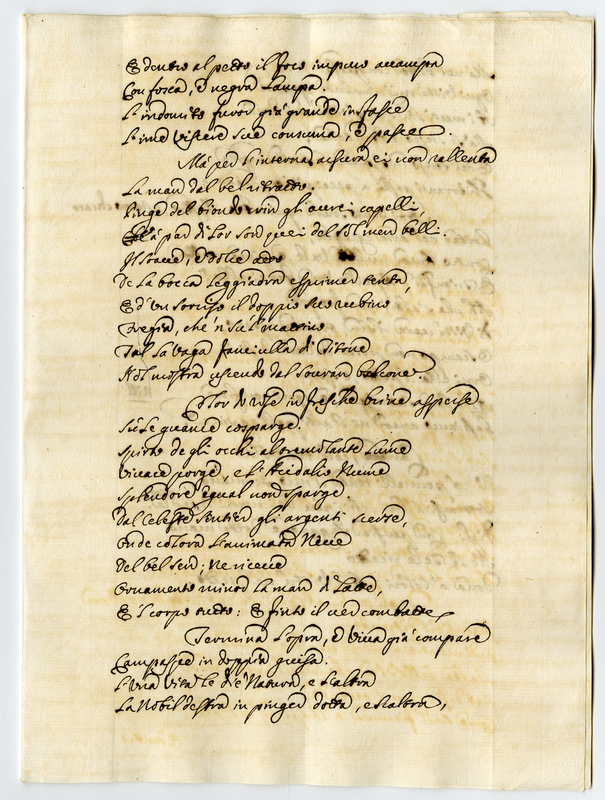 E dentro al petto il foco impuro accampa
Con fosca, e negra Lampa.
L'indomito furor già grande in fasce
L'ime viscere sue consuma, e pasce.
Mà per l'interna arsura ei non rallenta
La man dal bel ritratto.
Pinge del biondo crin gli aurei capelli,
E à par di lor son quei del Sol men belli.
Il soave, e dolce atto
De la bocca leggiadra esprimer tenta,
E d'un sorriso il doppio suo rubino
Fregia, che 'n sù'l mattino
Tal la vaga fanciulla di Titone
Nol mostra uscendo dal sovran balcone.
Fior di rose in fresche brine asperse
Sù le guance cosparge.
Spirto de gli occhi al tremolante lume
Vivace porge, e l'Acidalio Nume
Splendore egual non sparge.
Dal Celeste sentier gli argenti scerse,
Onde colora l'animata Neve
Del bel sen; ne riceve
Ornamento minor la man di latte,
E 'l corpo tutto: E finto il ver combatte.
Termina l'opra, e viva già compare
Campaspe in doppia guisa.
L'una vita le diè Natura, e l'altra
La Nobil destra in pinger dotta, e scaltra,